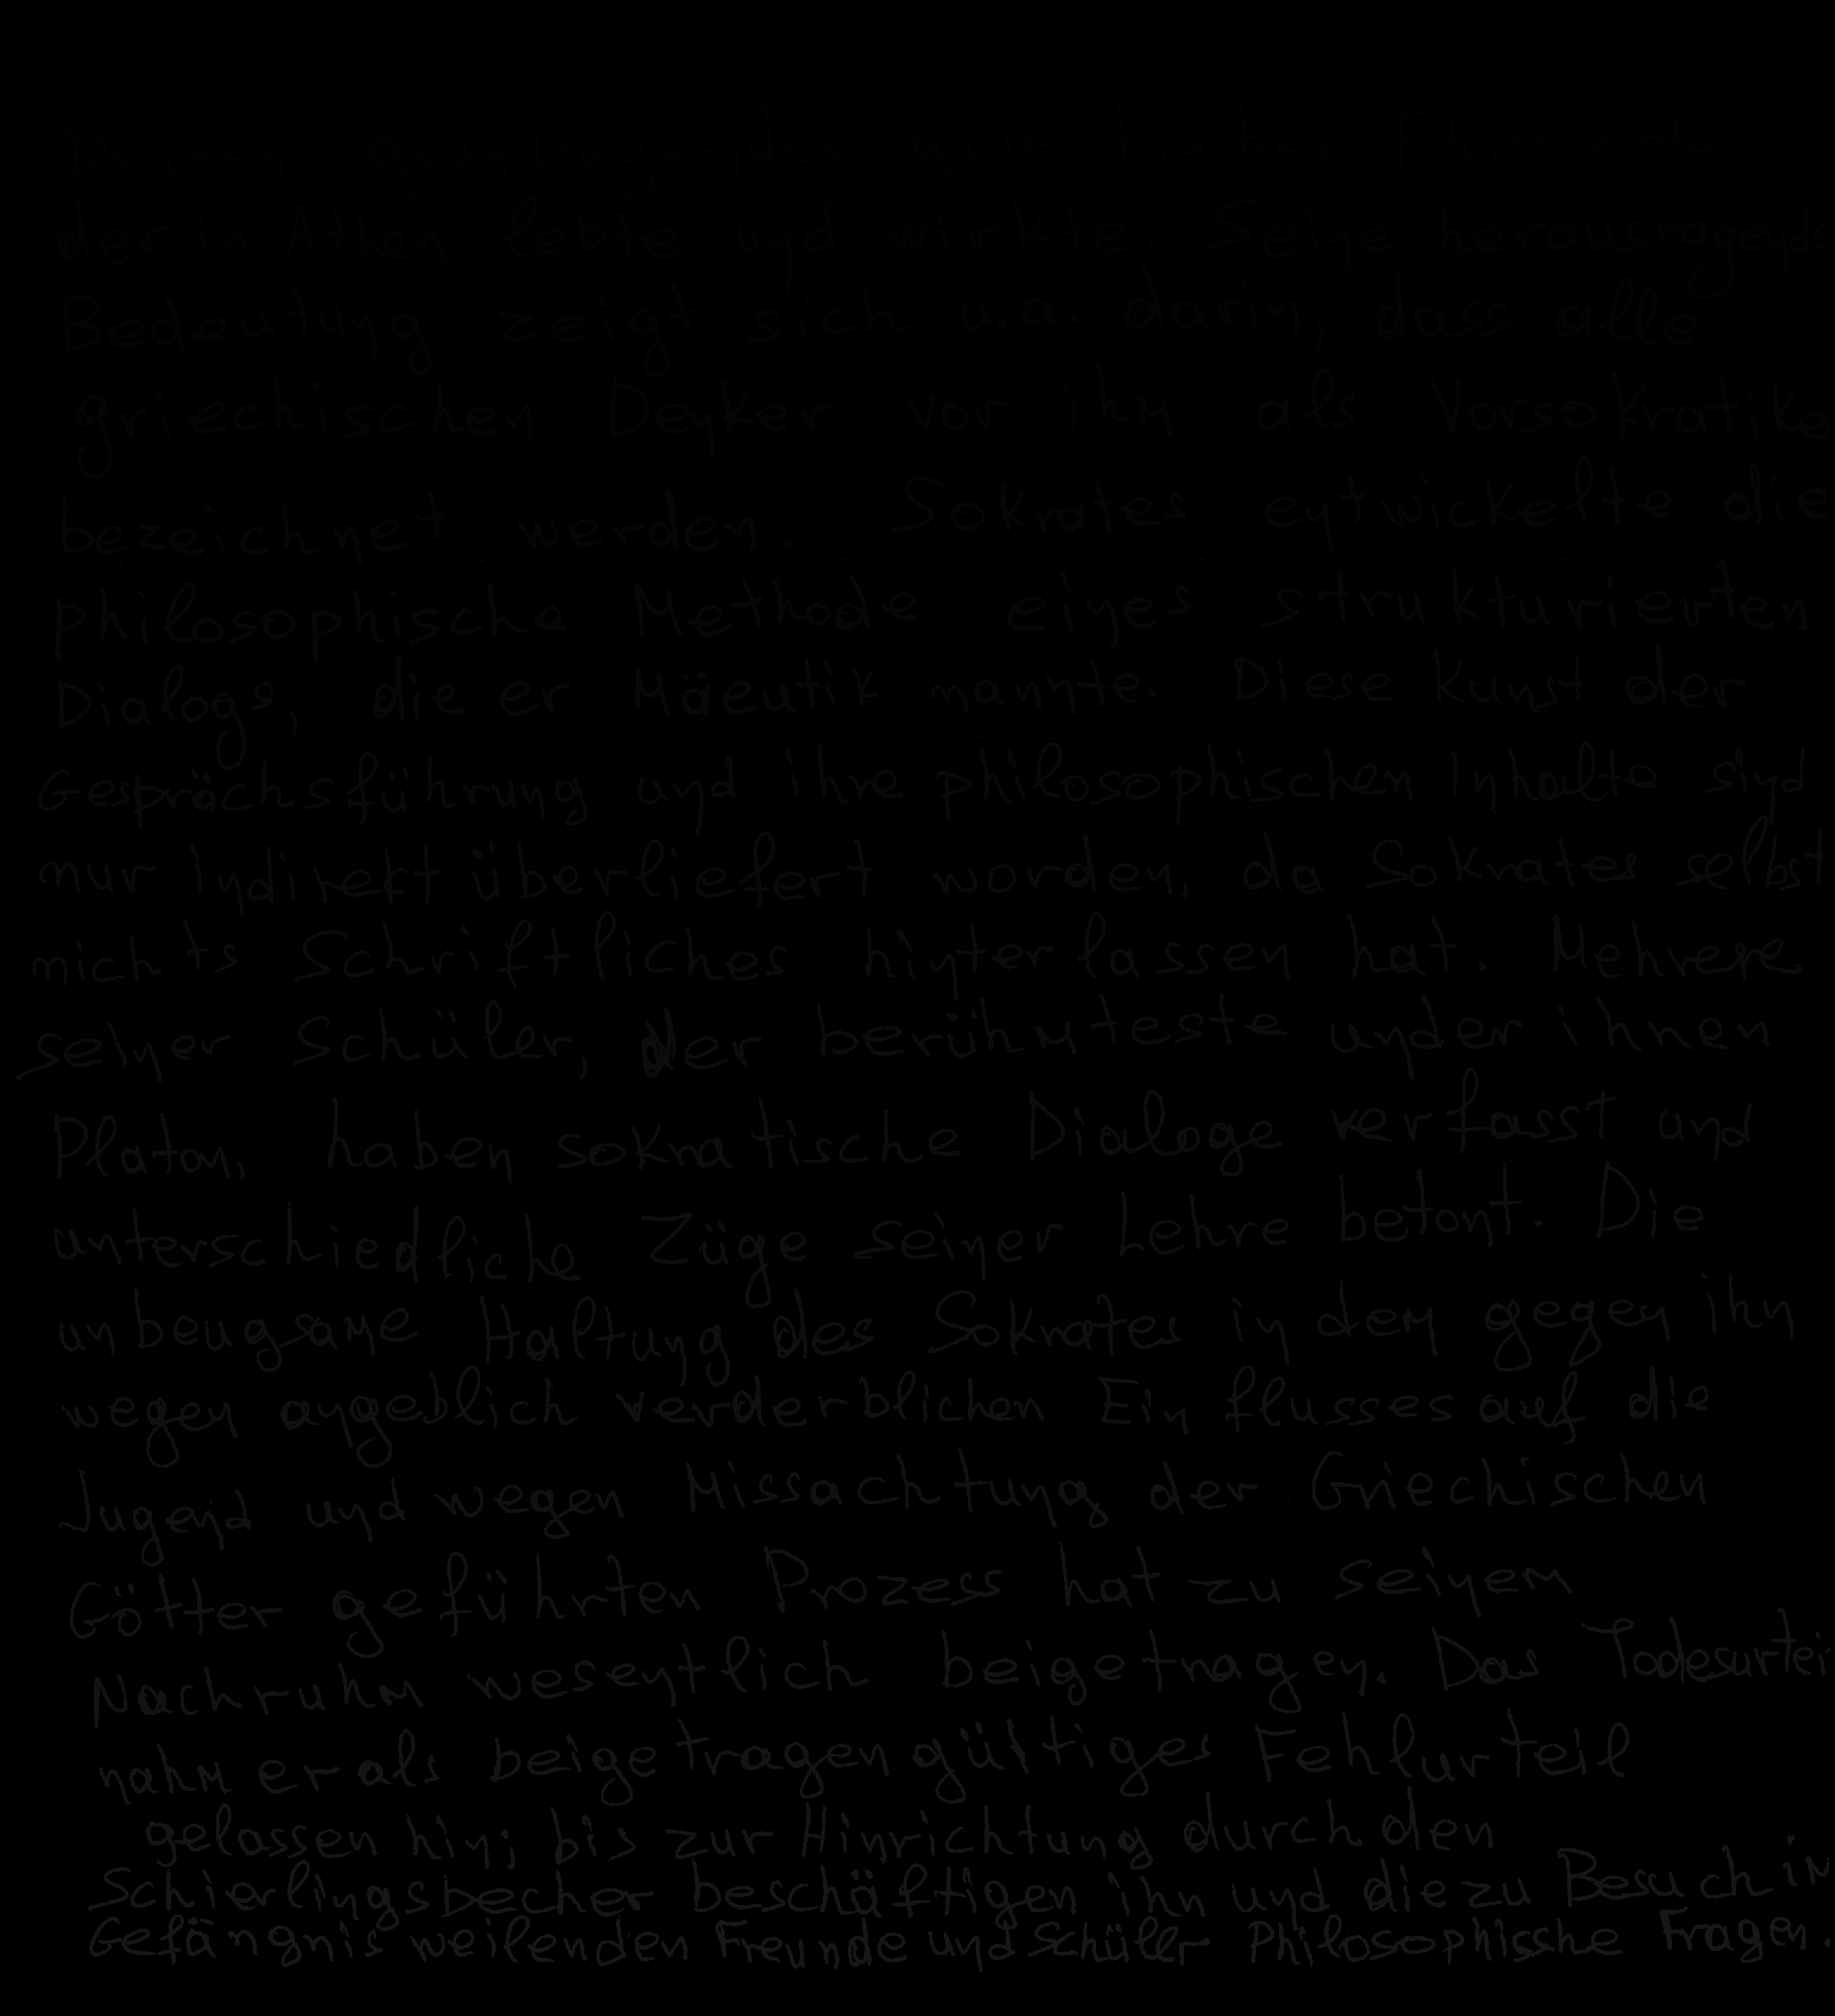 Denken grundlegender griechischer Philosoph,
der in Athen lebte und wirkte. Seine herausragende
Bedeutung zeigt sich u.a. darin, dass alle
griechischen Denker vor ihm als Vorsokratike
bezeichnet werden. Sokrates entwickelte die
philosophische Methode eines strukturierten
Dialogs, die er Mäeutik nannte. Diese Kunst der
Gesprächsführung und ihre philosophischen Inhalte sind
nur indirekt überliefert worden, da Sokrates selbst
nichts Schriftliches hinterlassen hat. Mehrere
seiner Schüler, der berühmteste under ihnen
Platon, haben sokratische Dialoge verfasst und
unterschiedliche Züge seiner Lehre betont. Die
unbeugsame Haltung des Sokrates in dem gegen ihn
wegen angeblich verderblichen Einflusses auf die
Jugend und wegen Missachtung der Griechischen
Götter geführten Prozess hat zu seinem
Nachruhm wesentlich beigetragen. Das Todesurtei
nahm er als beigetragen gültiges Fehlurteil
gelassen hin; bis zur Hinrichtung durch den
Schierlingsbecher beschäftigen ihn und die zu Besuch im
Gefängnis weilenden Freunde und Schüler Philosophisshe Fragen.